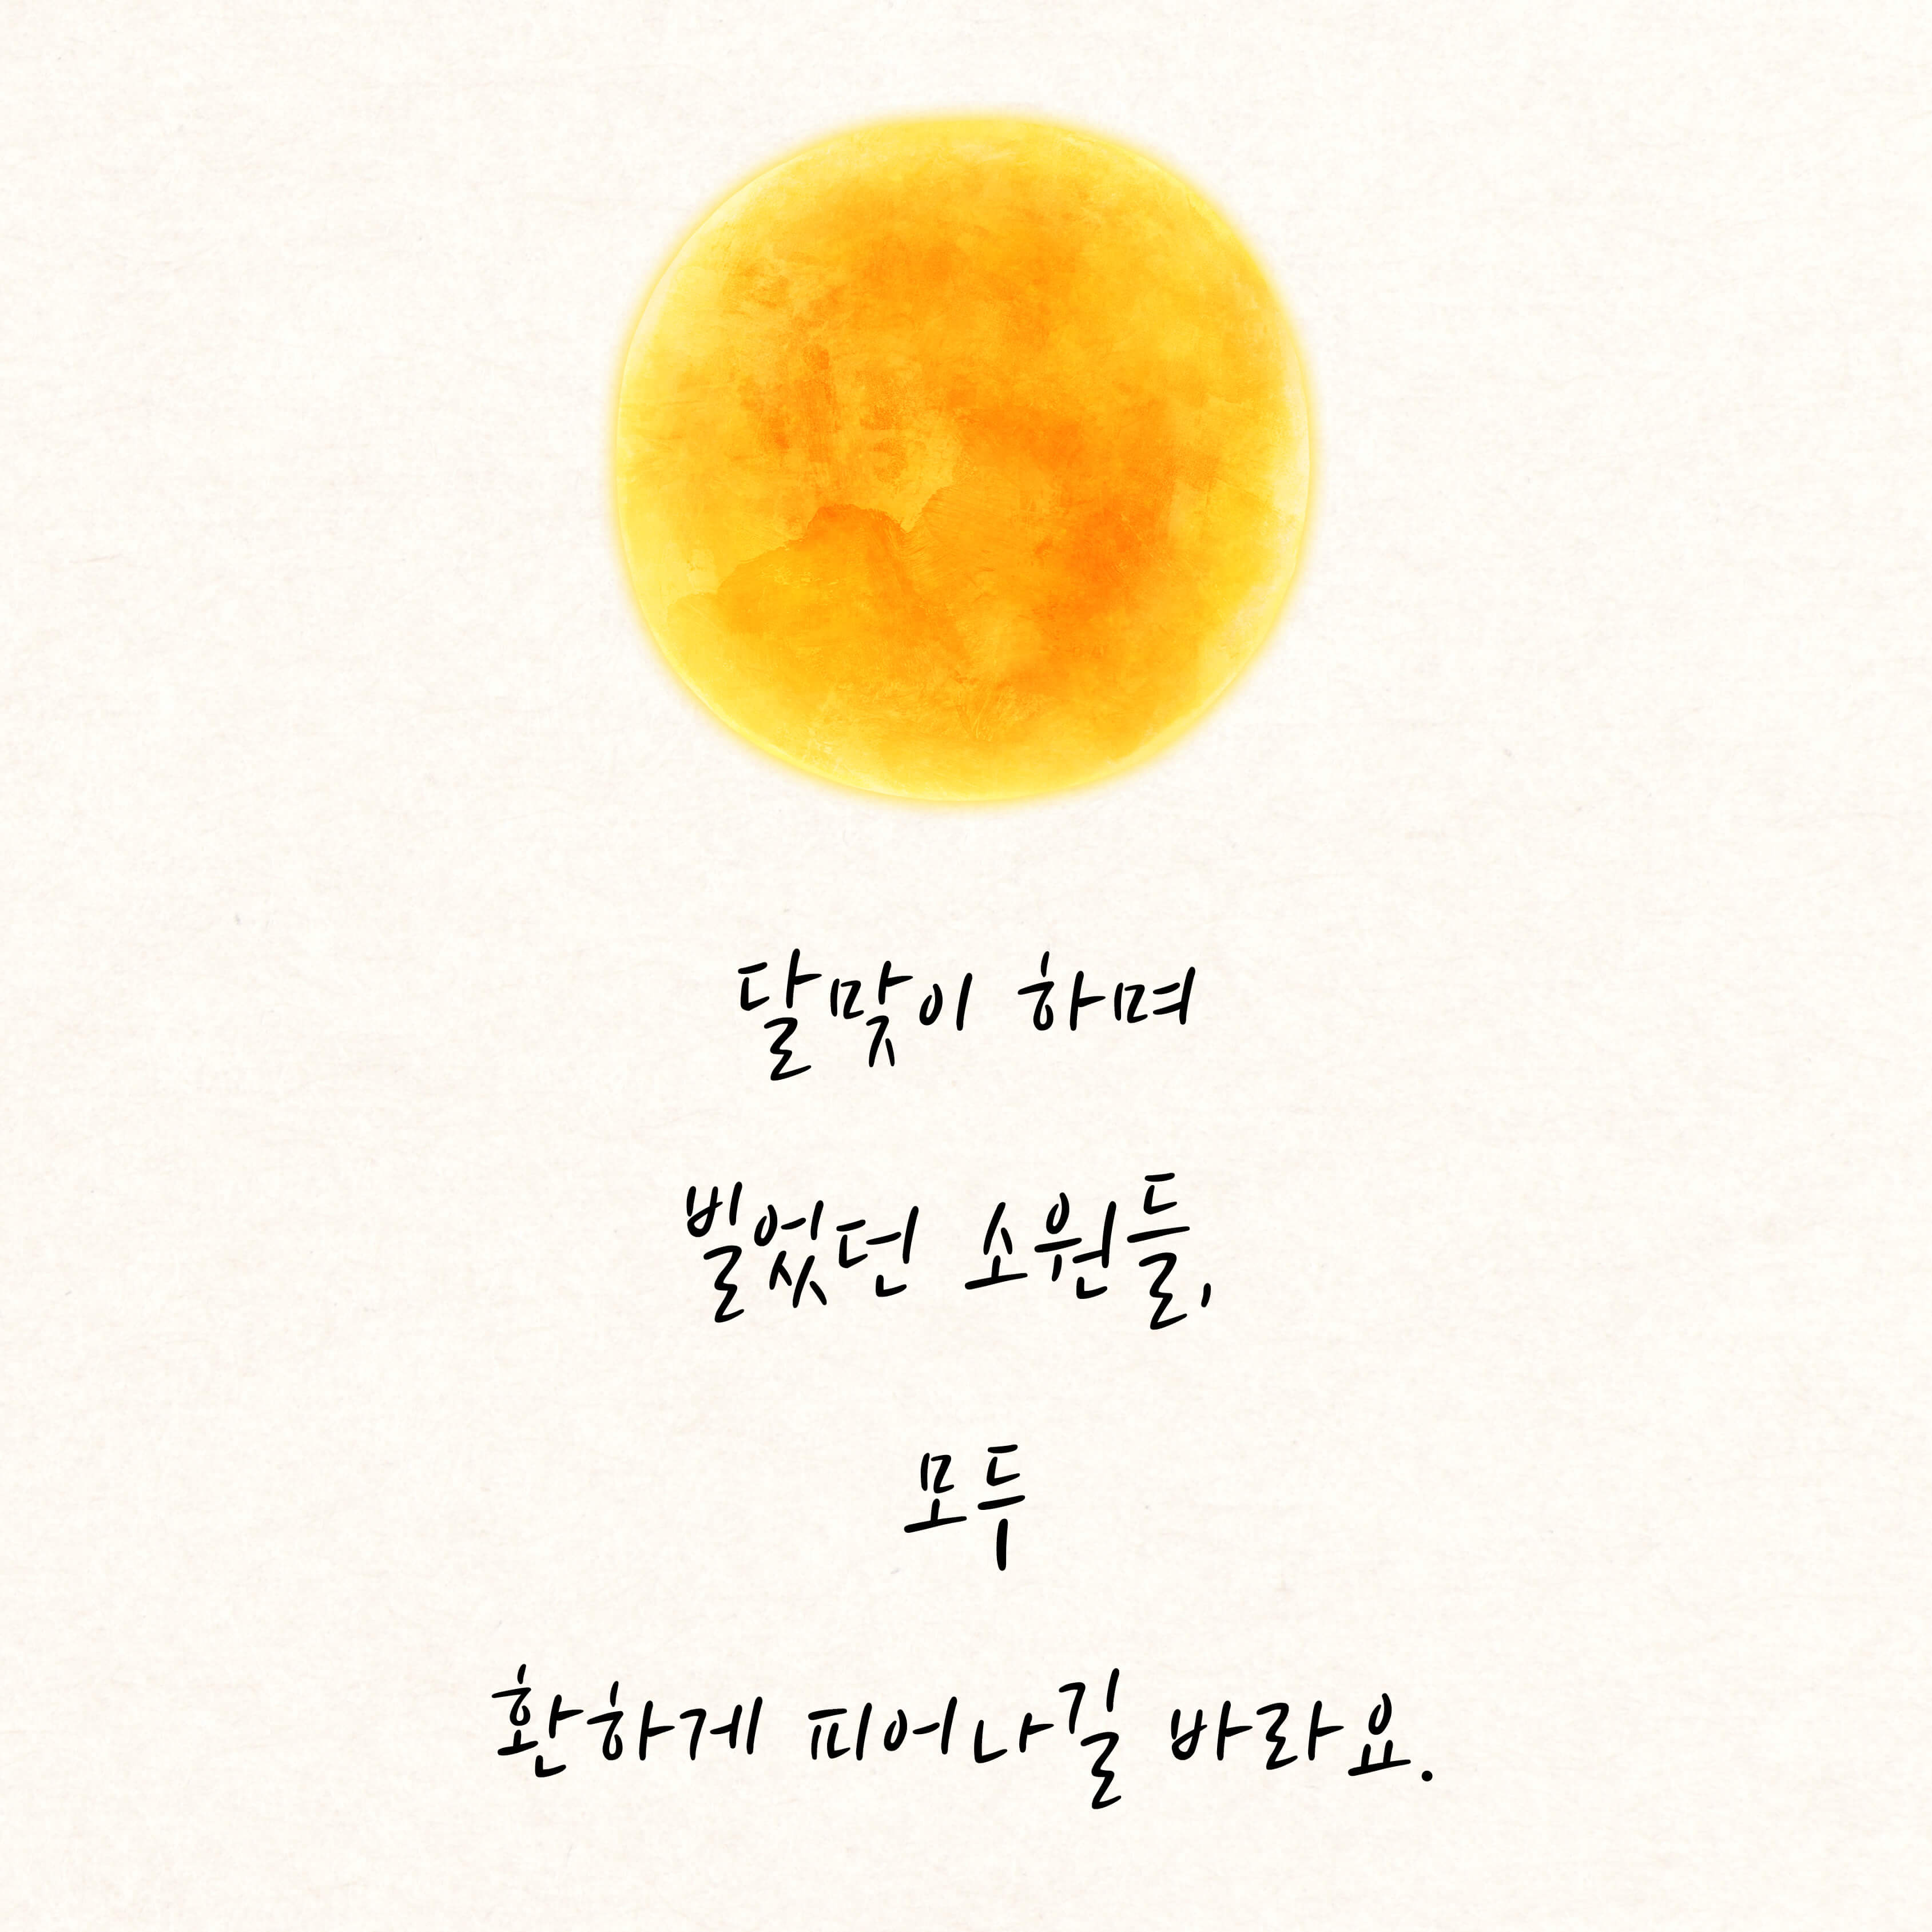 달맞이 하며
빌었던 소원들,
모두
환하게 피어나길 바라요.